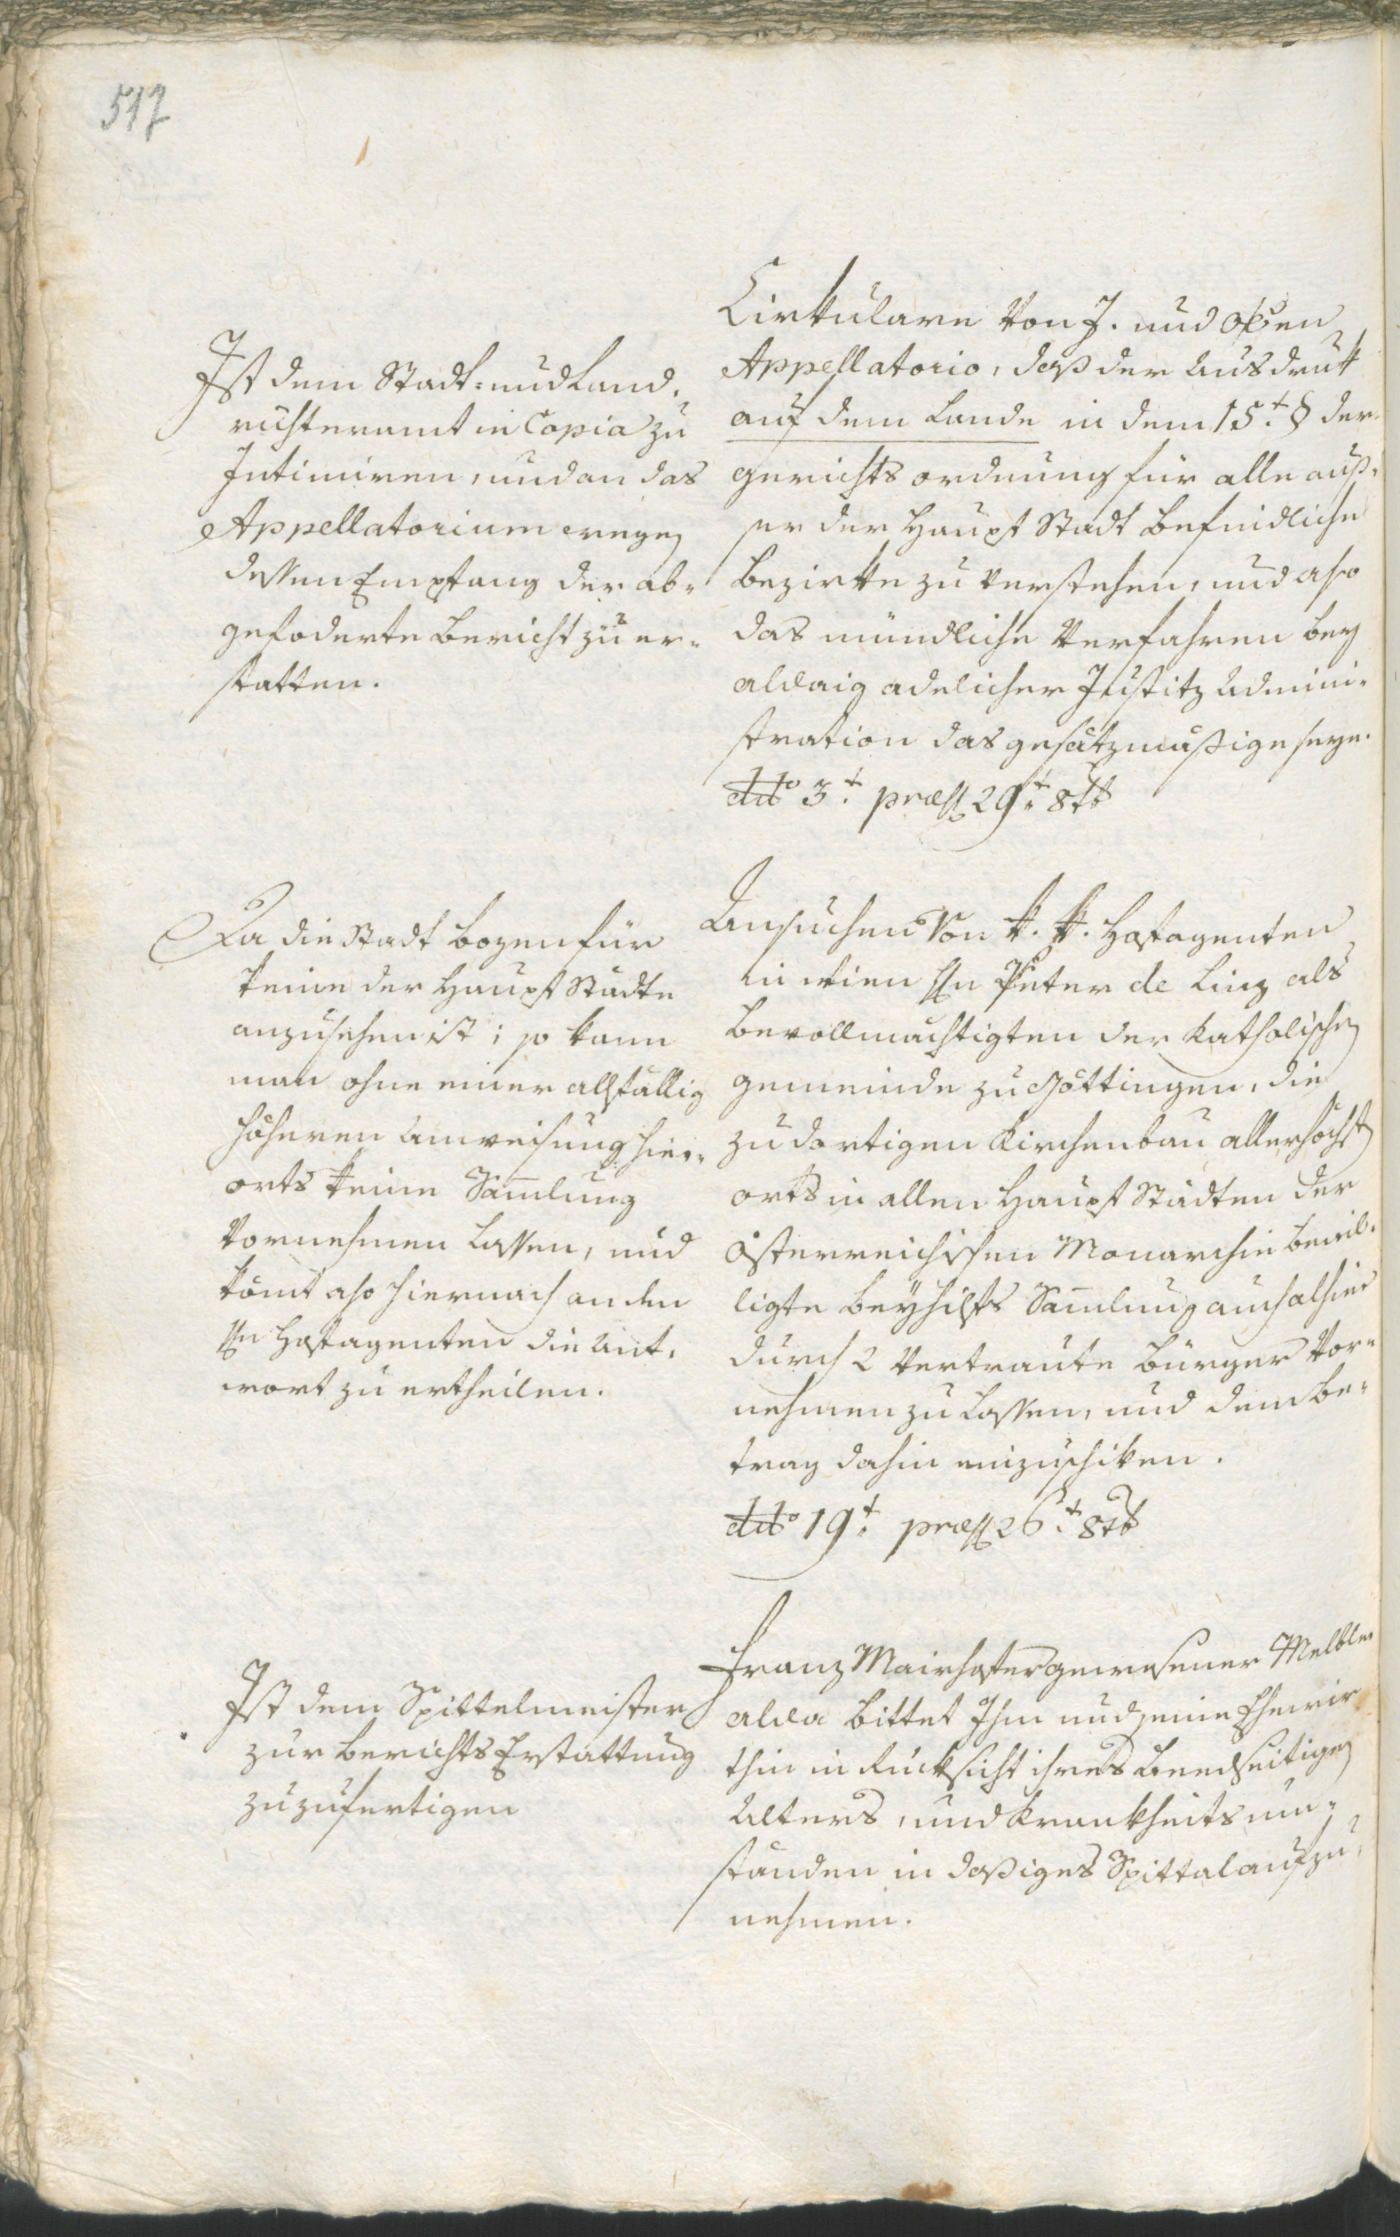 517
Ist dem Stadt- und Land-
richteramt in Copia zu
Intimiren, und an das
Appellatorium wegen
dessen Empfang der ab-
gefoderte Bericht zu er-
statten.
Cirkulare von J. und OÖen
Appellatorio, daß der Ausdruk
auf dem Lande in dem 15t. § der
gerichts ordnung für alle auß-
ser der Haupt Stadt befindliche
Bezirke zu verstehen, und also
das mündliche Verfahren bey
aldaig adelicher Justitz Admini-
stration das gesätzmäßige seye.
ddo 3t. præs 29t. 8tb
Da die Stadt Bozen für
keine der Haupt Städte
anzusehen ist; so kann
man ohne einer allfällig
höheren Anweisung hier-
orts keine Samlung
vornehmen lassen, und
kömt also hiernach an den
Hn Hofagenten die Ant-
wort zu ertheilen.
Ansuchen von k. k. Hofagenten
in Wien Hn Peter de Linz als
bevollmächtigten der Katholischen
gemeinde zu Göttingen, die
zu dortigen Kirchenbau allerhöchst
orts in allen Haupt Städten der
österreichischen Monarchie bewil-
ligte Beyhilfs Samlung auch alhier
durch 2 vertraute Bürger vor-
nehmen zu lassen, und dem be-
trag dahin einzuschiken.
ddo 19t. præs 26t. 8tb
Ist dem Spittelmeister
zur berichts Erstattung
zuzufertigen
Franz Mairhofer gewesener Melbler
alda bittet Ihm und seine Ehewir
thin in Rücksicht ihres beedseitigen
Alters, und Krankheits um-
ständen in daßiges Spittal aufzu-
nehmen.